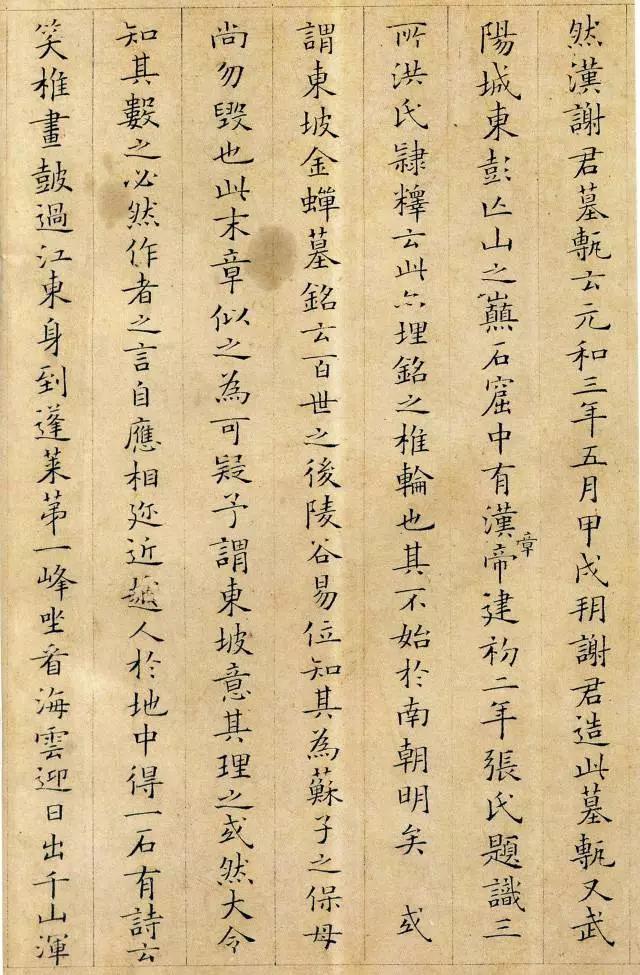 然漢謝君墓甎云元和三年五月甲戌朔謝君造此墓甎又武
陽城東彭亾山之巔石窟中有漢章帝建初二年張氏題識三
所洪氏隷釋云此亦埋銘之椎輪也其不始於南朝明矣 或
謂東坡金蟬墓銘云百世之後陵谷易位知其為蘇子之保母
尚勿毀也此末章似之為可疑予謂東坡意其理之或然大令
知其數之必然作者之言自應相迩近越人於地中得一石有詩云
笑椎畫鼓過江東身到蓬萊苐一峰坐看海雲迎日出千山渾